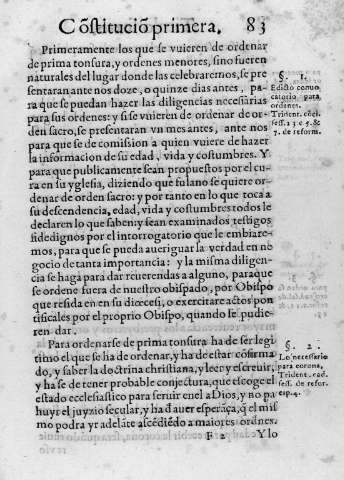 Cõstitució primera. 83
Primeramente los que se vuieren de ordenar
de prima tonsura, y ordenes menores, sino fueren
naturales del lugar donde las celebraremos, se pre
sentaran ante nos doze, o quinze dias antes, pa
ra que se puedan hazer las diligencias necessarias
para sus ordenes: y si se vuieren de ordenar de or-
den sacro, se presentaran vn mes antes, ante nos
para que se de comission a quien vuiere de hazer
la informacion de su edad, vida y costumbres. Y
para que publicamente sean propuestos por el cu-
ra en su yglesia, diziendo que fulano se quiere or-
denar de orden sacro: y por tanto en lo que toca a
su descendencia, edad, vida y costumbres todos le
declaren lo que saben: y sean examinados testigos
fidedignos por el interrogatorio que le embiare-
mos, para que se pueda aueriguar la verdad en ne
gocio de tanta importancia: y la misma diligen-
cia se haga para dar reuerendas a alguno, para que
se ordene fuera de nuestro obispado, por Obispo
que resida en en su diocesi, o exercitare actos pon
tificales por el proprio Obispo, quando le pudie-
ren dar.
§. 1.
Edicto conuo
catorio para
ordenes.
Trident. cõcil.
sess. 23 c 5. &
7. de reform.
Para ordenarse de prima tonsura ha de ser legi
timo el que se ha de ordenar, y ha de estar cõfirma
do, y saber la doctrina christiana, y leer y escreuir,
y ha se de tener probable conjectura, que escoge el
estado ecclesiastico para seruir en el a Dios, y no pa
huyr el juyzio secular, y ha d̃ auer esperãça, q̃ el mis
mo podra yr adelãte ascẽdiẽdo a maiores ordnes.
§. 2.
Lo necessario
para corona,
Trident. cad.
sess. de refor.
esp. 4.
F 2 Y lo